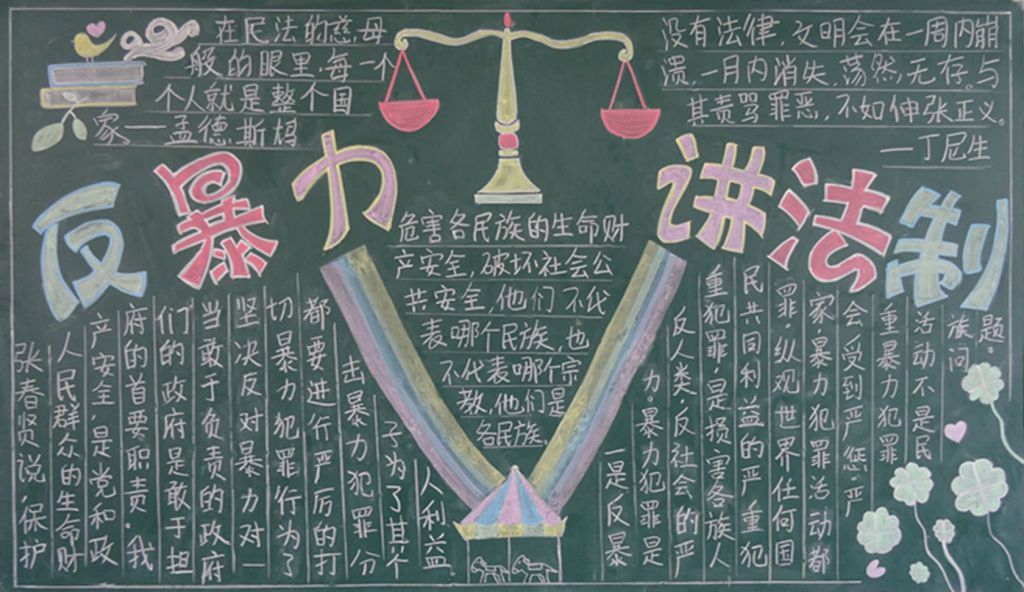 在民法的慈母
般的眼里.每一个
个人就是整个国
家——孟德斯鸠
没有法律,文明会在一周内崩
溃,一月内消失,荡然无存,与
其责骂罪恶,不如伸张正义。
—丁尼生
反暴力 讲法制
危害各民族的生命财
产安全,破坏社会公
共安全,他们不代
表哪个民族,也
不代表哪个宗
教,他们是
各民族。
张春贤说,保护
人民群众的生命财
产安全.是党和政
府的首要职责.我
们的政府是敢于担
当敢于负责的政府
坚决反对暴力对一
切暴力犯罪行为了
都要进行严厉的打
击暴力犯罪分
子为了其个
人利益
一是反暴
力.暴力犯罪是
反人类,反社会的严
重犯罪,是损害各族人
民共同利益的严重犯
罪.纵观世界任何国
家,暴力犯罪活动都
会受到严惩.严
重暴力犯罪
活动不是民
族问
题.